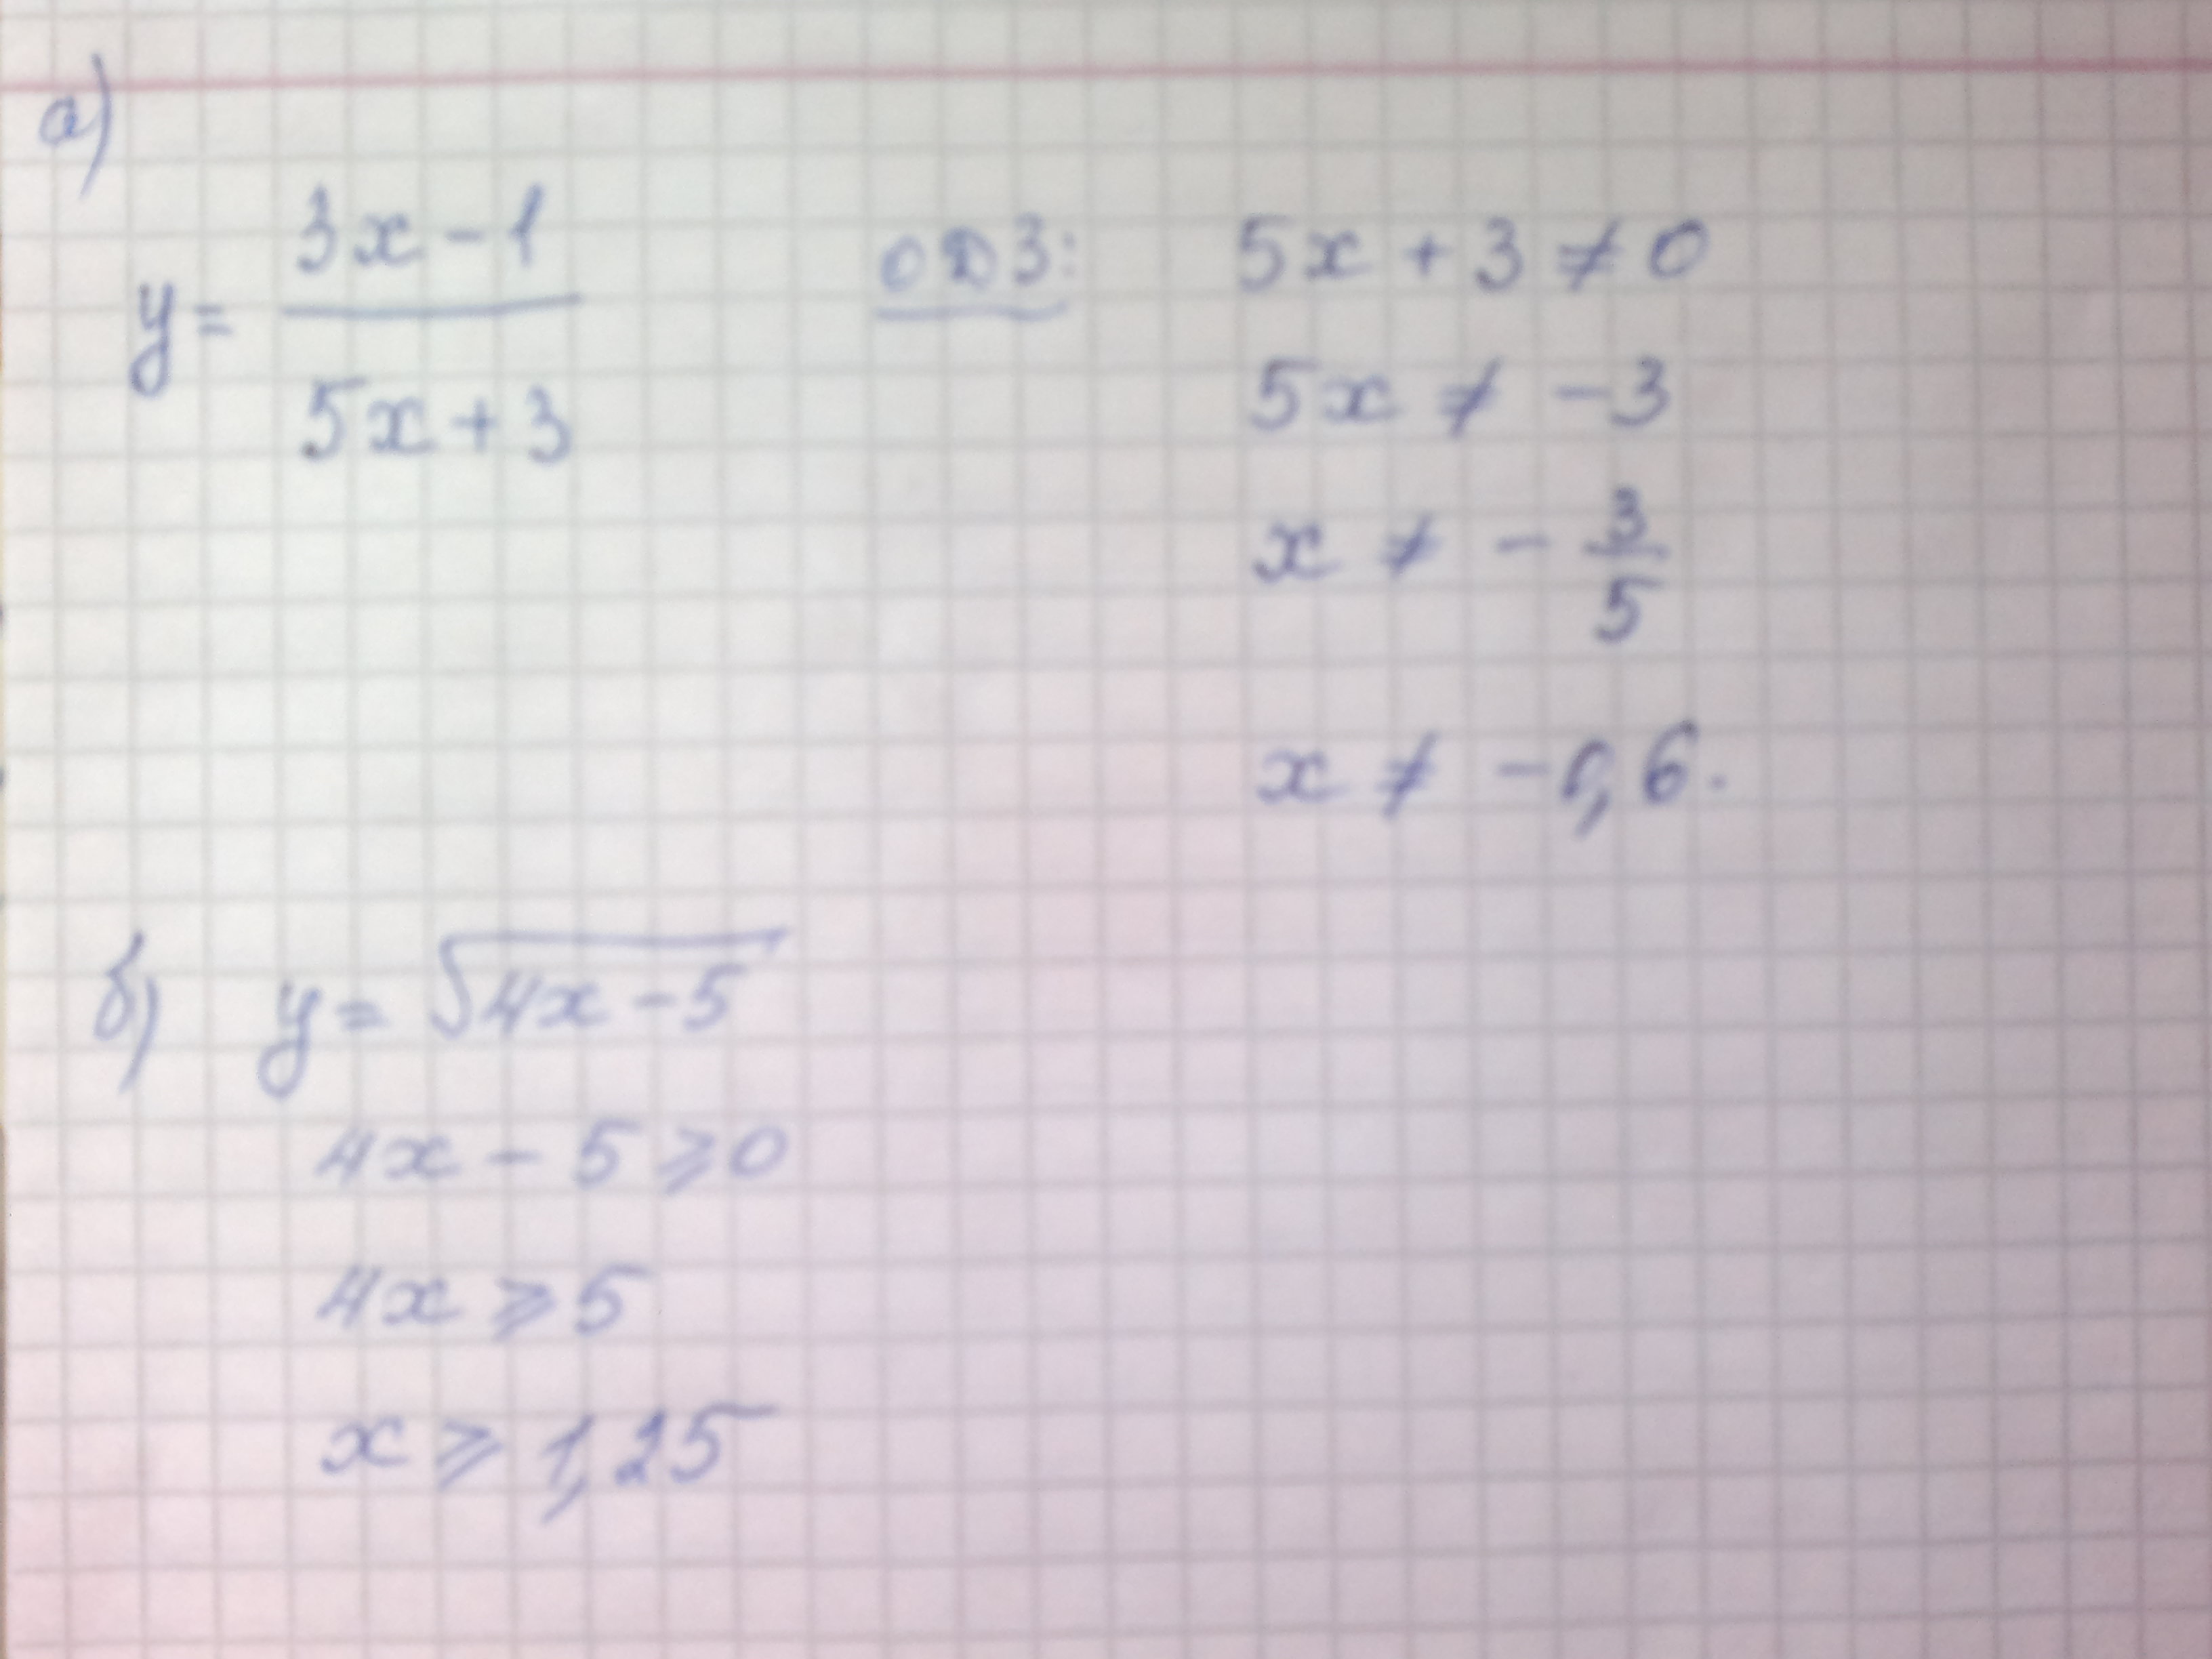 а)
y = (3x - 1)/(5x + 3)
ОДЗ: 5x + 3 ≠ 0
5x ≠ -3
x ≠ - 3/5
x ≠ -0,6.
б) y = √(4x - 5)
4x - 5 ⩾ 0
4x ⩾ 5
x ⩾ 1,25